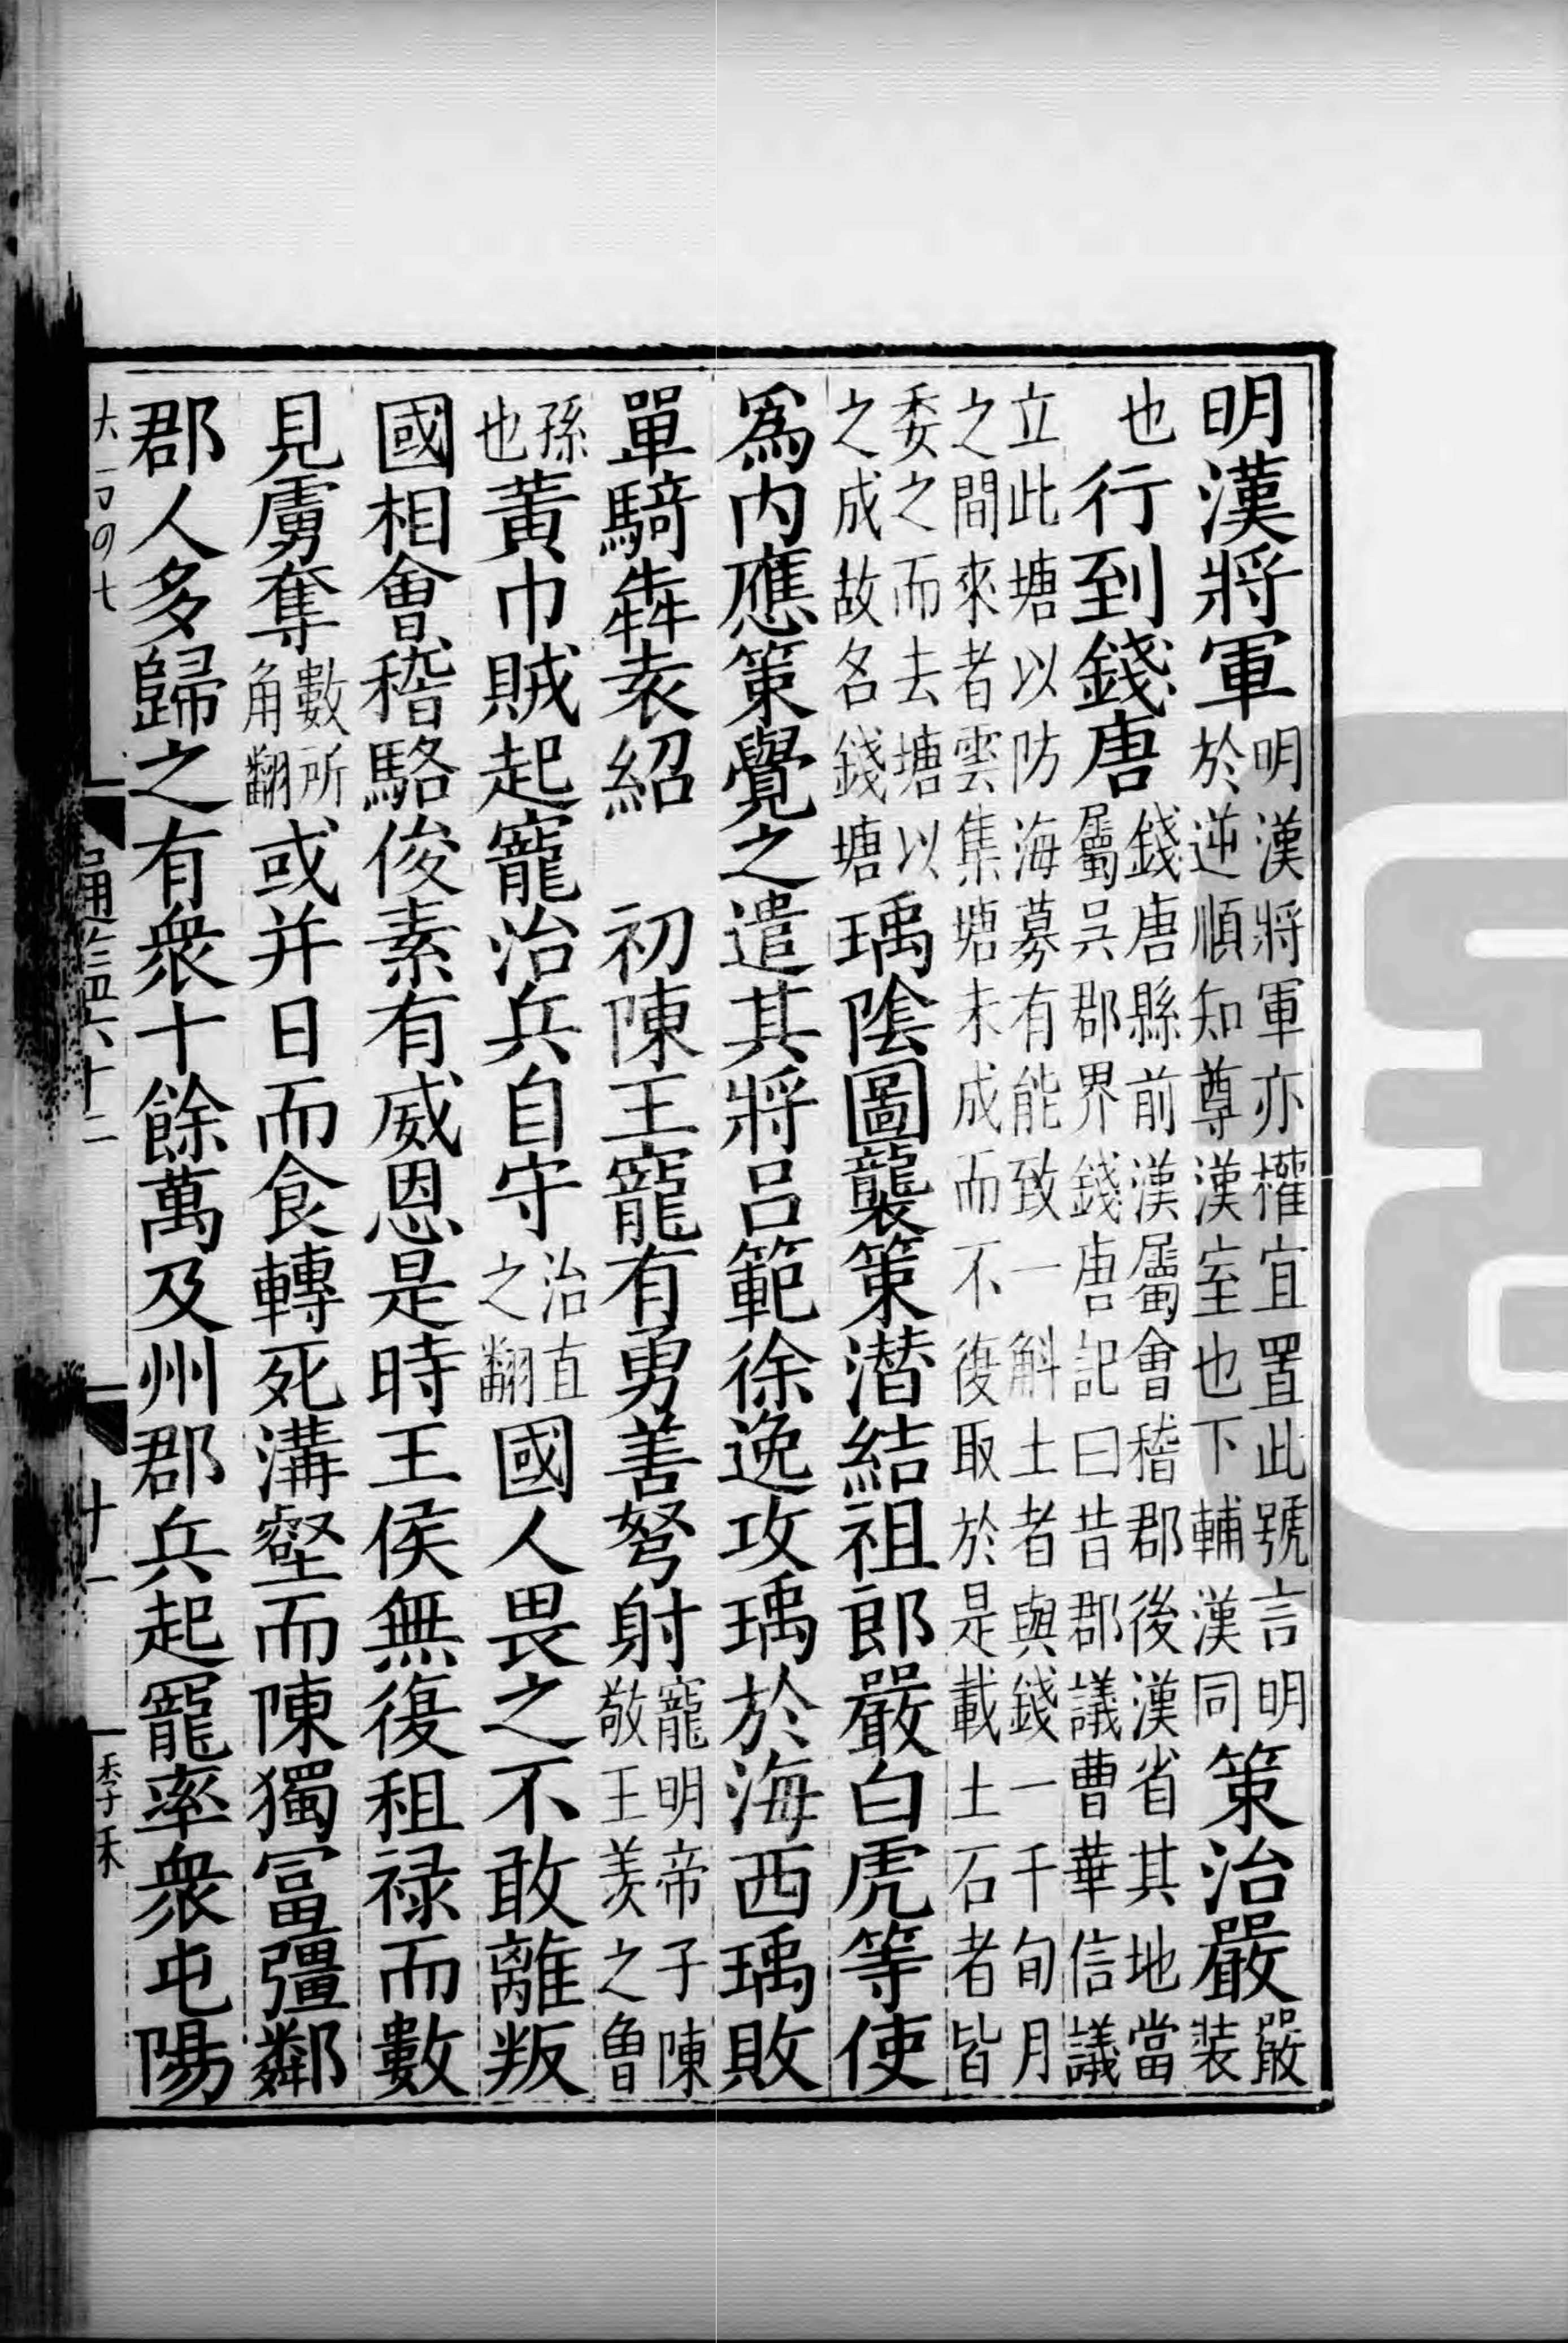 明漢將軍明漢將軍亦權宜置此號言明於逆順知尊漢室也下輔漢同策治嚴嚴裝
也行到錢唐錢唐縣前漢屬會稽郡後漢省其地當屬吳郡界錢唐記曰昔郡議曹華信議
立此塘以防海募有能致一斛土者與錢一千旬月之間來者雲集塘未成而不復取於是載土石者皆
委之而去塘以之成故名錢塘瑀陰圖襲策潛結祖郎嚴白虎等使
爲内應策覺之遣其將呂範徐逸攻瑀於海西瑀敗
單騎犇袁紹　初陳王寵有勇善弩射寵明帝子陳敬王羨之曾
孫也黃巾賊起寵治兵自守治直之翻國人畏之不敢離叛
國相會稽駱俊素有威恩是時王侯無復租祿而數
見虜奪數所角翻或并日而食轉死溝壑而陳獨冨彊鄰
郡人多歸之有衆十餘萬及州郡兵起寵率衆屯陽
大一百四七
通鑑六十二
十一
李禾